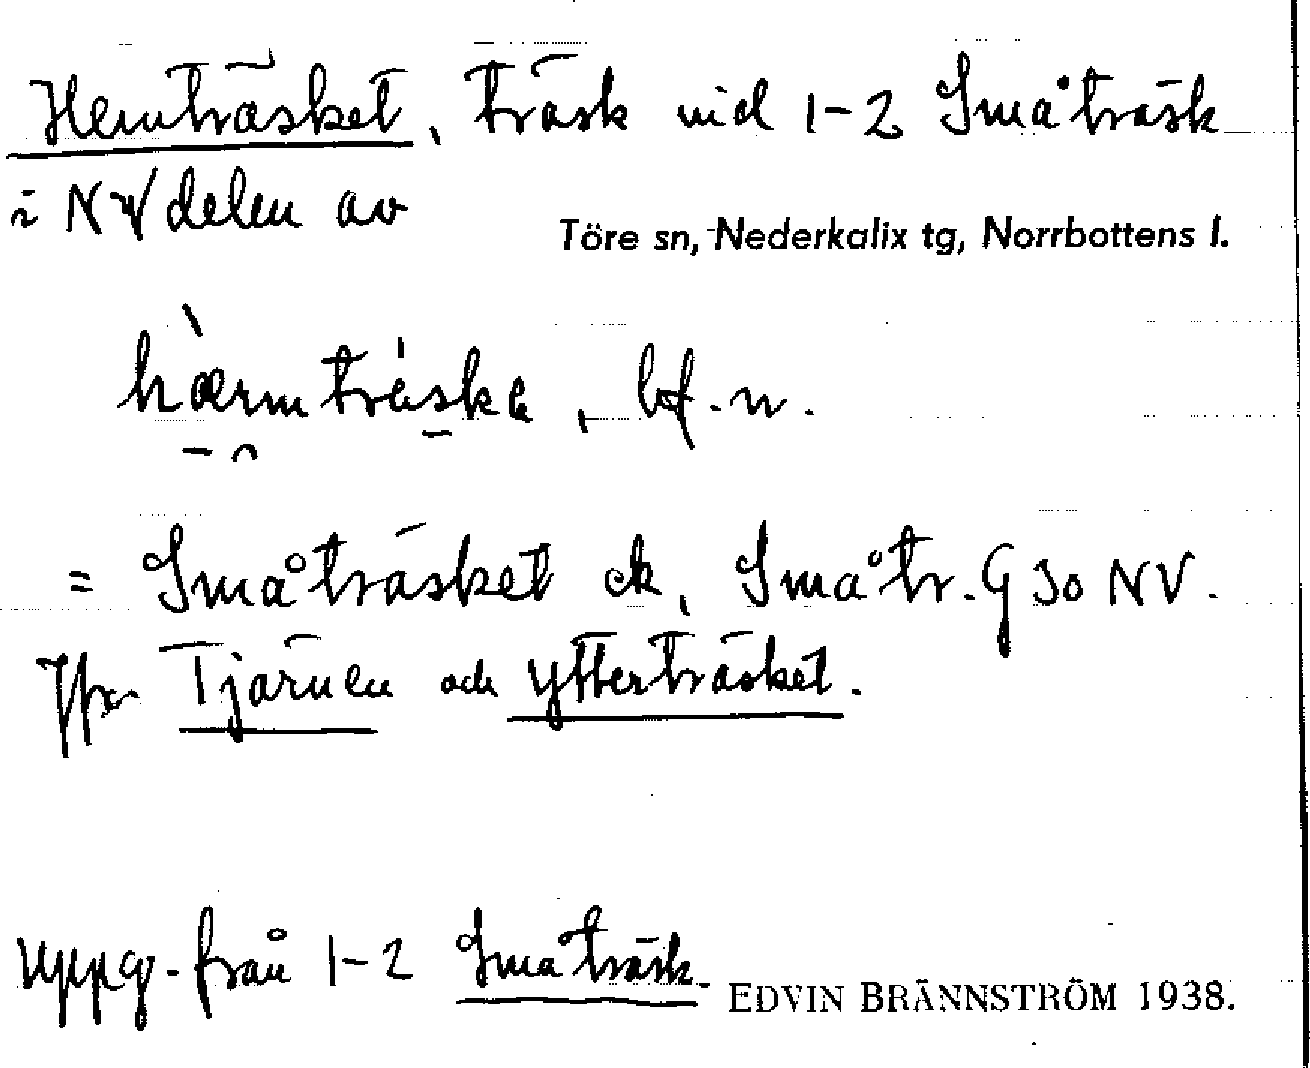 Hemträsket, träsk vid 1-2 Småträsk
i NV delen av
Töre sn, Nederkalix tg, Norrbottens l.
hæ̀rmtráske, bf. n.
= Småträsket ek, Småtr. G 30 NV.
Jfr Tjärnen och Ytterträsket.
Uppg. från 1-2 Småträsk.
EDVIN BRÄNNSTRÖM 1938.